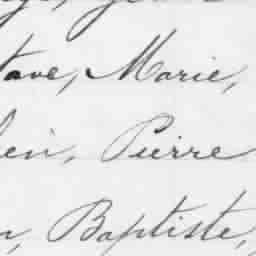 tave, Marie,
ien, Pierre
n, Baptiste,